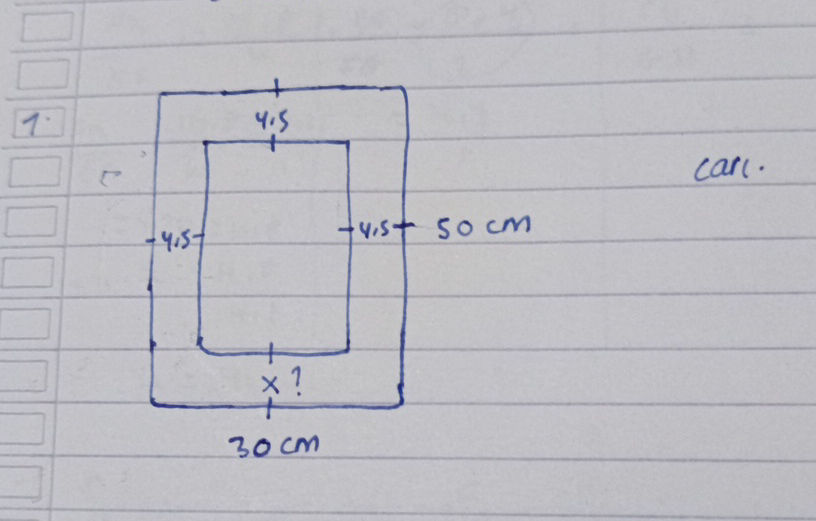 1.
4.5
4,5
4,5
50 cm
x ?
30 cm